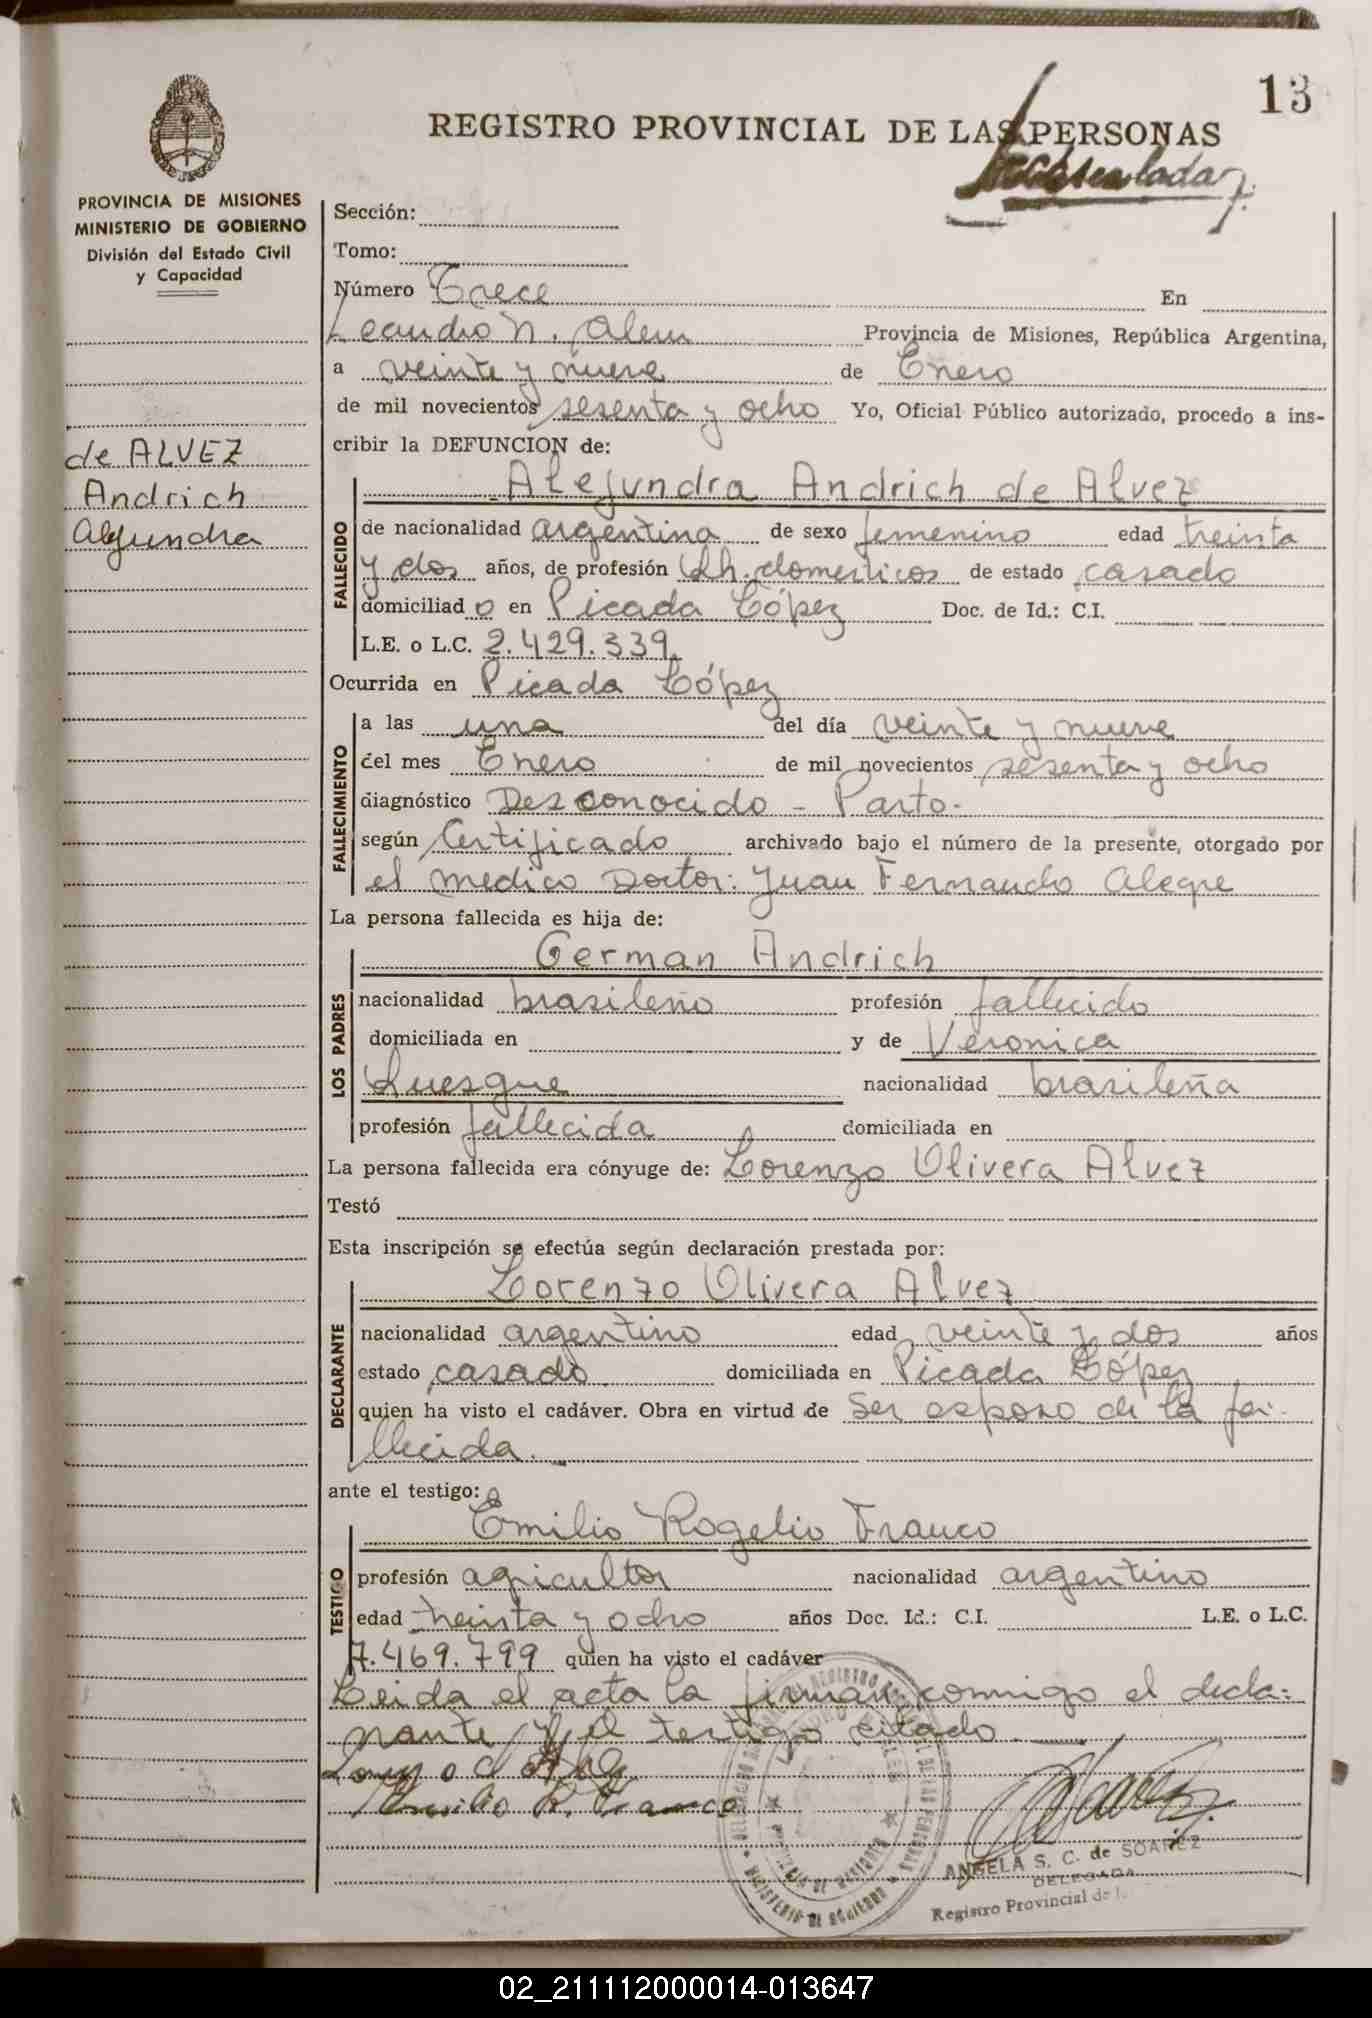 13
REGISTRO PROVINCIAL DE LAS PERSONAS
PROVINCIA DE MISIONES
MINISTERIO DE GOBIERNO
División del Estado Civil
y Capacidad
de ALVEZ
Andrich
Alejundra
Sección:
Tomo:
Número Trece En
Leandro N. Alem Provincia de Misiones, República Argentina,
a veinte y nueve de Enero
de mil novecientos sesenta y ocho Yo, Oficial Público autorizado, procedo a ins-
cribir la DEFUNCION de:
Alejundra Andrich de Alvez
FALLECIDO
de nacionalidad argentina de sexo femenino edad treinta
y dos años, de profesión Qh. domesticos de estado casado
domiciliad o en Picada López Doc. de Id.: C.I.
L.E. o L.C. 2.429.339.
Ocurrida en Picada López
FALLECIMIENTO
a las una del día veinte y nueve
del mes Enero de mil novecientos sesenta y ocho
diagnóstico Desconocido - Parto.
según Certificado archivado bajo el número de la presente, otorgado por
el medico Doctor: Juan Fernando Alegre
La persona fallecida es hija de:
German Andrich
LOS PADRES
nacionalidad brasileño profesión fallecido
domiciliada en y de Veronica
Luesque nacionalidad brasileña
profesión fallecida domiciliada en
La persona fallecida era cónyuge de: Lorenzo Olivera Alvez
Testó
Esta inscripción se efectúa según declaración prestada por:
Lorenzo Olivera Alvez
DECLARANTE
nacionalidad argentino edad veinte y dos años
estado casado domiciliada en Picada López
quien ha visto el cadáver. Obra en virtud de ser esposo de la fa-
llecida.
ante el testigo:
Emilio Rogelio Franco
TESTIGO
profesión agricultor nacionalidad argentino
edad treinta y ocho años Doc. Id.: C.I. L.E. o L.C.
7.469.799 quien ha visto el cadáver
Leida el acta la firman conmigo el decla-
rante y el testigo citado
Emilio R. Franco
ANGELA S. C. de SOAREZ
DELEGADA
Registro Provincial de
02_211112000014-013647